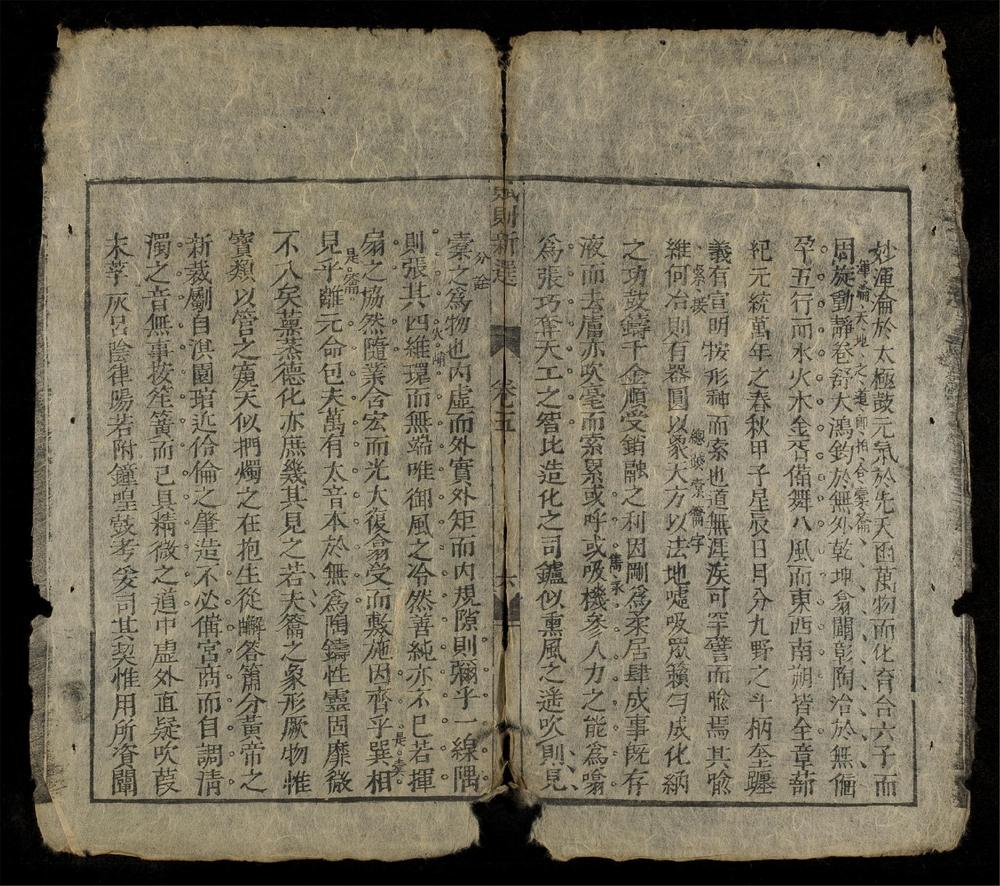 妙渾淪於太極鼓元氣於先天函萬物而化育合六子而
渾淪天地之道即相合橐籥
周旋動靜卷舒大鴻鈞於無外乾坤翕闢彰陶冶於無偏
孕五行而水火木金否備舞八風而東西南朔皆全章蔀
紀元統萬年之春秋甲子星辰日月分九野之斗柄奎躔
義有宣明按形神而索也道無涯涘可罕譬而喻焉其喻
總發橐籥字
維何冶則有器圓以象天方以法地噓吸眾籟勻成化納
之功鼓鑄千金順受銷融之利因剛為柔居肆成事既存
雋永
液而去膚亦吹毫而索累或呼或吸機參人力之能為噏
為張巧奪天工之智比造化之司鑪似熏風之遙吹則見
賦則新選
卷五
六
分詮
橐之為物也內虛而外實外矩而內規隙則彌乎一線隅
則張其四維環而無端唯御風之泠然善純亦不已若揮
是橐
扇之協然隨橐含宏而光大復翕受而敷施因齊乎巽相
是籥
見乎離元命包夫萬有太音本於無為陶鑄性靈固靡微
不入矣薰蒸德化亦庶幾其見之若夫籥之象形厥物惟
寶類以管之窺天似捫燭之在抱生從嶰谷篇分黃帝之
新裁劚自淇園琯近伶倫之肇造不必備宮商而自調清
濁之音無事按笙簧而已具精微之道中虛外直疑吹葭
末莩灰呂陰律陽若附鐘喤鼓考爰司其契惟用所資闢